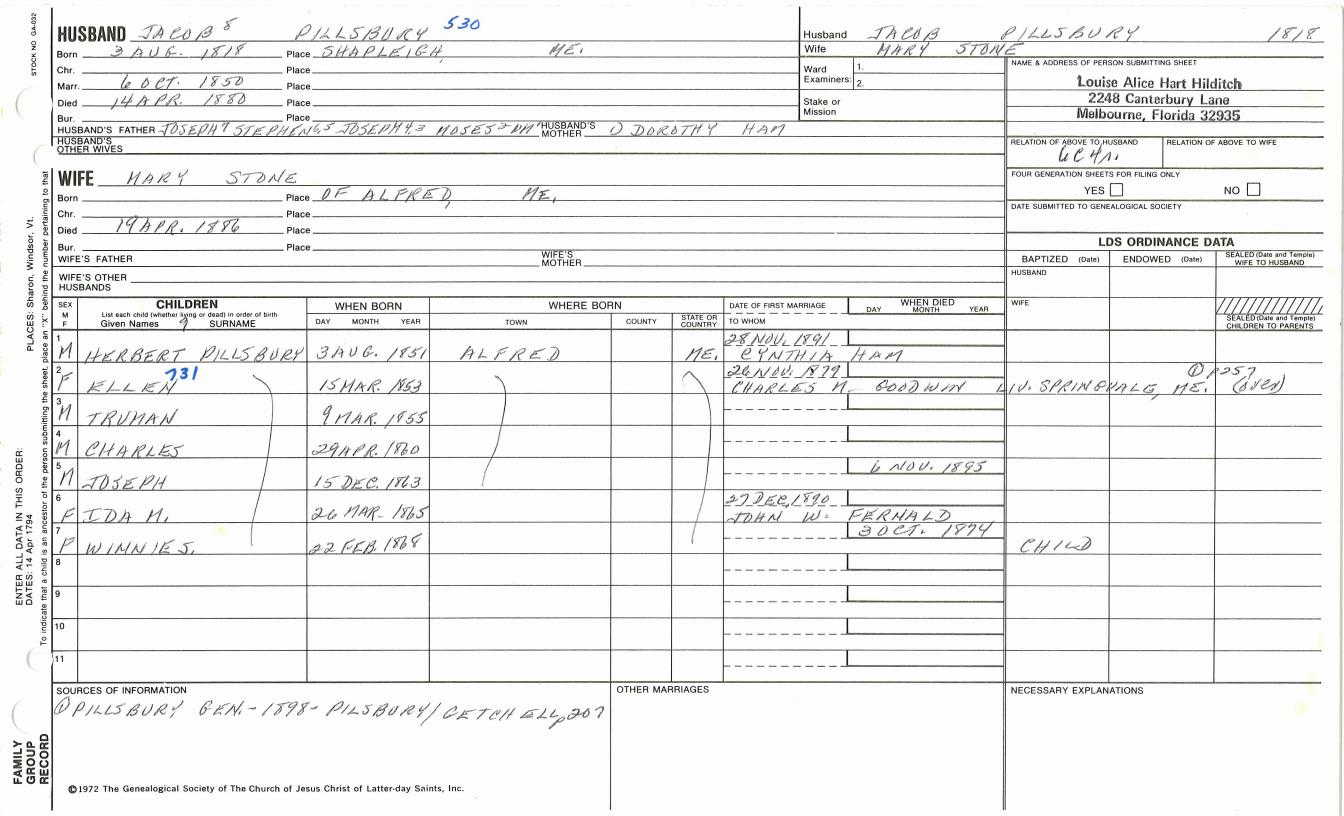 STOCK NO GA-032
HUSBAND JACOB 8 PILLSBURY 530
Born 3 AUG. 1818 Place SHAPLEIGH, ME.
Chr. Place
Marr. 6 OCT. 1850 Place
Died 14 APR. 1880 Place
Bur. Place
HUSBAND'S FATHER JOSEPH 7 STEPHEN 6,5 JOSEPH 4,3 MOSES 2 HUSBAND'S MOTHER ① DOROTHY HAM
HUSBAND'S OTHER WIVES
Husband JACOB PILLSBURY 1818
Wife MARY STONE
Ward Examiners: 1.
2.
Stake or Mission
NAME & ADDRESS OF PERSON SUBMITTING SHEET
Louise Alice Hart Hilditch
2248 Canterbury Lane
Melbourne, Florida 32935
RELATION OF ABOVE TO HUSBAND RELATION OF ABOVE TO WIFE
FOUR GENERATION SHEETS FOR FILING ONLY
YES NO
DATE SUBMITTED TO GENEALOGICAL SOCIETY
WIFE MARY STONE
Born Place OF ALFRED, ME.
Chr. Place
Died 19 APR. 1886 Place
Bur. Place
WIFE'S FATHER WIFE'S MOTHER
WIFE'S OTHER HUSBANDS
LDS ORDINANCE DATA
BAPTIZED (Date) ENDOWED (Date) SEALED (Date and Temple) WIFE TO HUSBAND
HUSBAND
WIFE
SEALED (Date and Temple) CHILDREN TO PARENTS
SEX M F CHILDREN WHEN BORN WHERE BORN DATE OF FIRST MARRIAGE WHEN DIED
List each child (whether living or dead) in order of birth
Given Names 9 SURNAME DAY MONTH YEAR TOWN COUNTY STATE OR COUNTRY TO WHOM DAY MONTH YEAR
1 M HERBERT PILLSBURY 3 AUG. 1851 ALFRED ME. 28 NOV. 1891 CYNTHIA HAM
2 F ELLEN 731 15 MAR. 1853 26 NOV. 1879 CHARLES M. GOODWIN LIV. SPRINGVALE, ME. ① P257 (OVER)
3 M TRUMAN 9 MAR. 1855
4 M CHARLES 29 APR. 1860
5 M JOSEPH 15 DEC. 1863 6 NOV. 1895
6 F IDA M. 26 MAR. 1865 27 DEC. 1890 JOHN W. FERNALD
7 F WINNIE S. 22 FEB. 1868 3 OCT. 1874 CHILD
8
9
10
11
SOURCES OF INFORMATION
① PILLSBURY GEN. - 1898 - PILSBURY/GETCHELL, p207
OTHER MARRIAGES
NECESSARY EXPLANATIONS
©1972 The Genealogical Society of The Church of Jesus Christ of Latter-day Saints, Inc.
FAMILY GROUP RECORD
ENTER ALL DATA IN THIS ORDER:
DATES: 14 Apr 1794
PLACES: Sharon, Windsor, Vt.
To indicate that a child is an ancestor of the person submitting the sheet, place an "X" behind the number pertaining to that